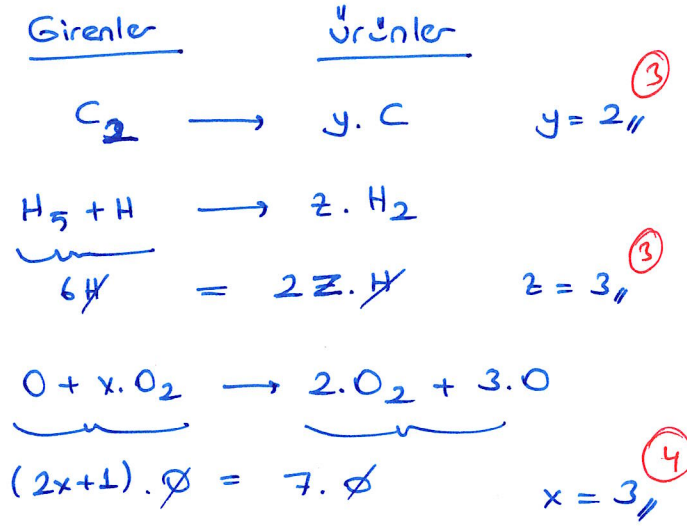 Girenler Ürünler
C₂ → y. C y = 2,, 3
H₅ + H → z. H₂
6H = 2z. H z = 3,, 3
O + x. O₂ → 2. O₂ + 3. O
(2x+1). O = 7. O x = 3,, 4